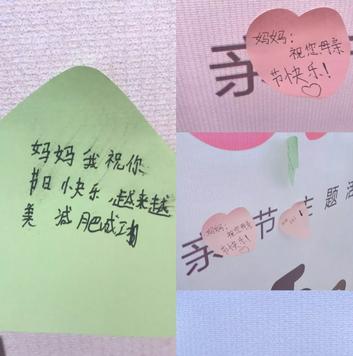 妈妈我祝你
节日快乐,越来越
美 减肥成功
亲
妈妈:
祝您母亲
节快乐!
亲 节 主题活
妈妈:
祝您母亲
节快乐!